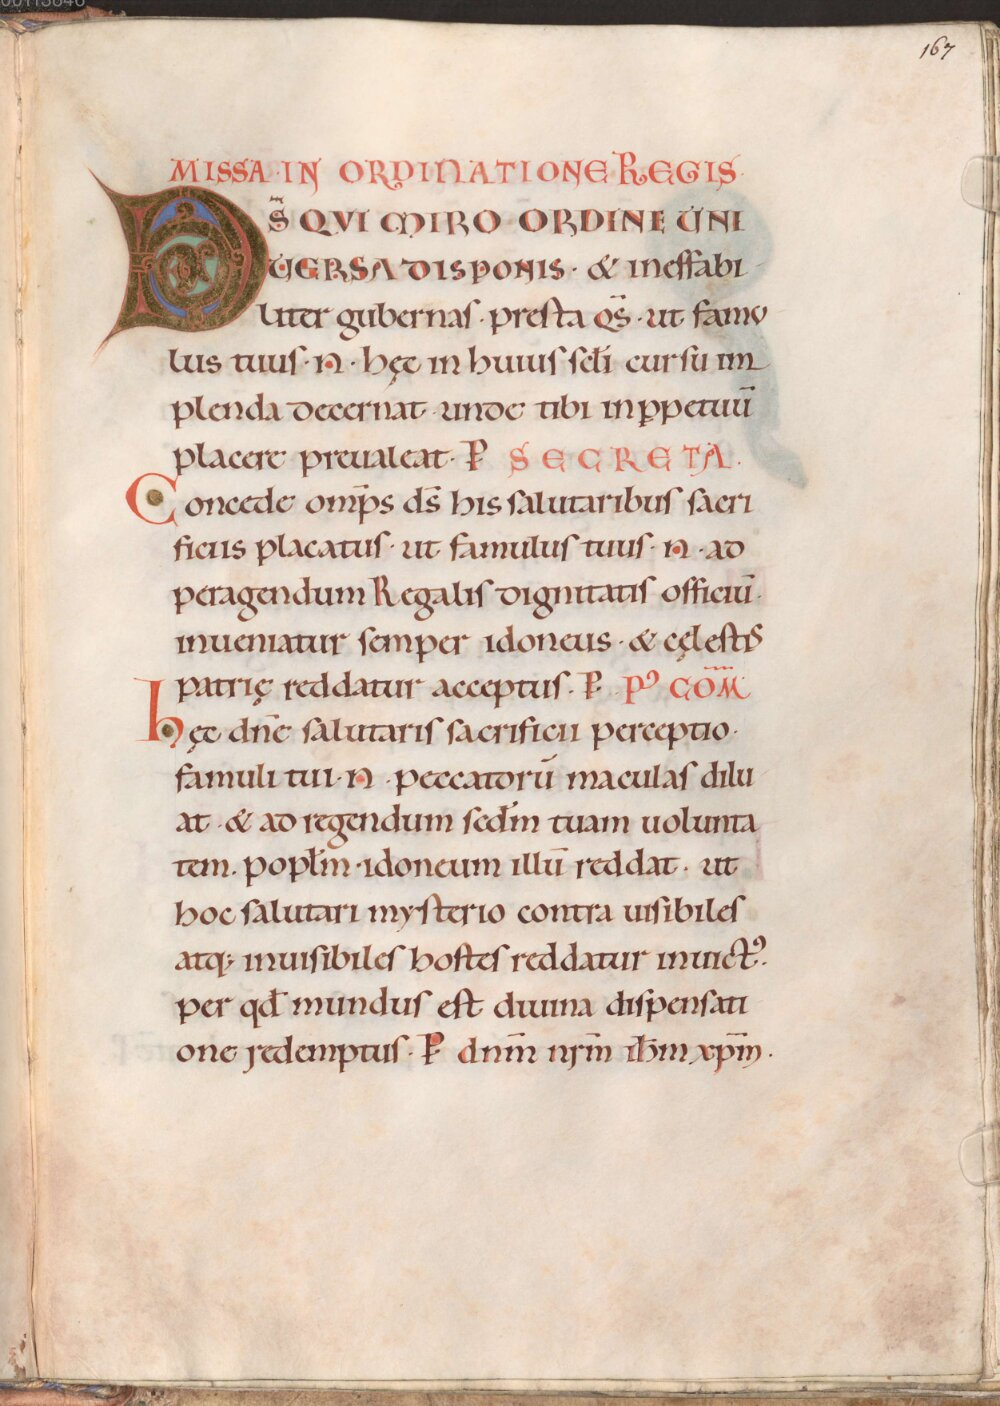 167
MISSA · IN ORDINATIONE REGIS ·
DS̄ QVI MIRO ORDINE UNI
UERSA DISPONIS · & ineffabi
liter gubernas · presta qs̄ · ut famu
lus tuus · N · hęc in huius scl̄i cursu im
plenda decernat unde tibi in ꝑpetuū
placere preualeat · P̱ SECRETA ·
Concede omp̄s ds̄ his salutaribus sacri
ficiis placatus · ut famulus tuus · N · ad
peragendum Regalis dignitatis officiū ·
inueniatur semper idoneus · & cęlestis
patrię reddatur acceptus · P̱ · Pꝰ COM̄
hęc dn̄e salutaris sacrificii perceptio ·
famuli tui · N · peccatorū maculas dilu
at · & ad regendum scd̄m tuam uolunta
tem · popl̄m · idoneum illū reddat · ut
hoc salutari mysterio contra uisibiles
atq; inuisibiles hostes reddatur inuictꝰ ·
per qd̄ mundus est diuina dispensati
one redemptus · P̱ dnm̄ nr̄m ih̄m xp̄m ·